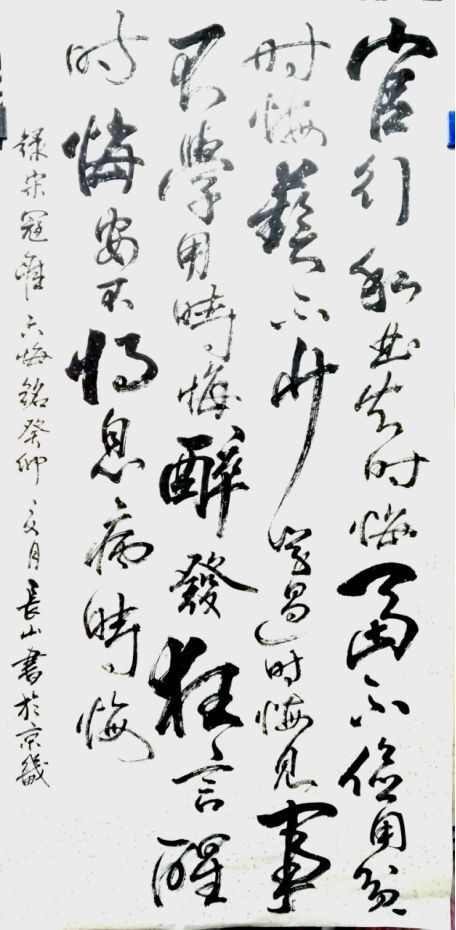 官行私曲失时悔富不俭用贫
时悔藝不少学過时悔見事
不學用時悔醉發狂言醒
时悔安不将息病時悔
録宋冠準六悔銘癸卯文月長山書於京畿